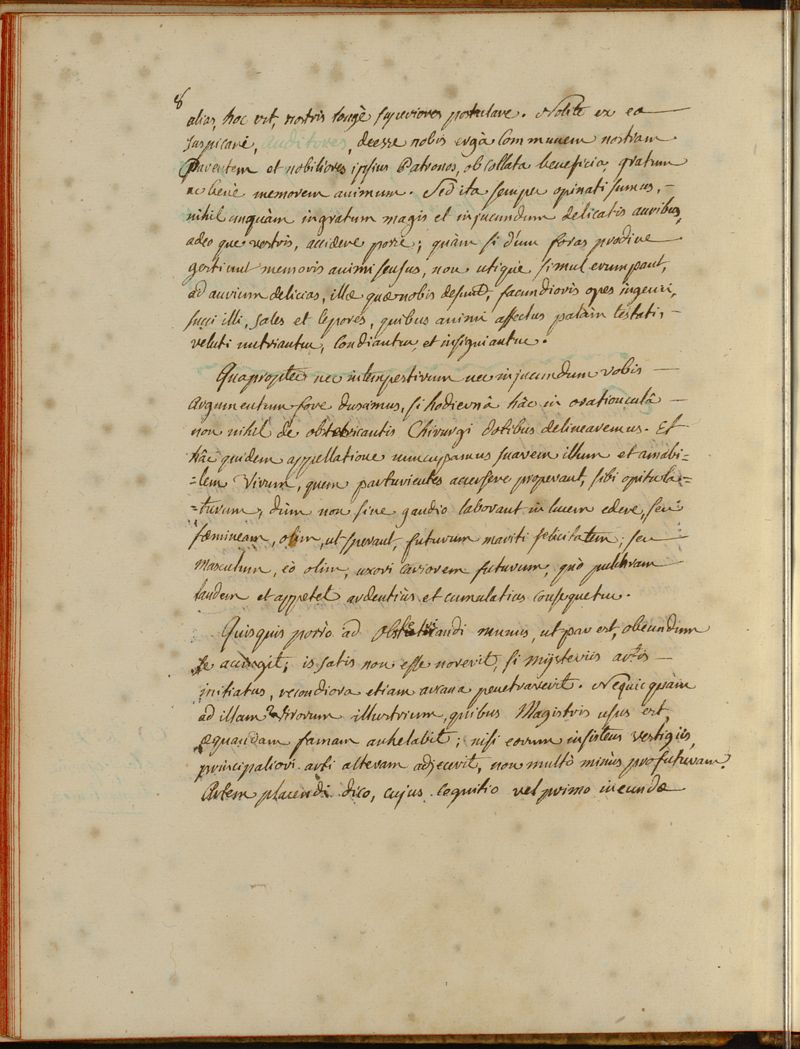 8
alias, hoc est, nostris longè superiores postulare. Nolite ex eo
suspicari, auditores, deesse nobis ergà communem nostram
Parentem et nobiliores ipsius Patronos, ob collata beneficia, gratum
ac benè memorem animum. Sed ita semper opinati sumus, -
nihil unquàm ingratum magis et injucundum delicatis auribus,
adeoque vestris, accidere posse; quàm si dùm foras prodire
gestiunt memoris animi sensus, non utique simul erumpant,
ad aurium delicias, illæ quæ nobis desunt, facundioris opes ingenii,
succi illi, sales et lepores, quibus animi affectus palàm testati, -
veluti nutriantur, condiantur, et insigniantur.
Quapropter nec intempestivum nec injucundum vobis —
argumentum fore duximus, si hodiernâ hâc in oratiunculâ —
non nihil de obstetricantis Chirurgi dotibus delinearemus. Et
hâc quidem appellatione nuncupamus suavem illum et amabi=
=lem Virum, quem parturientes accersere properant, sibi opitula=
=turum, dùm non sine gaudio laborant in lucem edere, seu
fæmineam, olim, ut sperant, futuram mariti felicitatem; seu
Masculum, eò olim, uxori cariorem futurum, quò pulchram
tandem et appetet ardentiùs et cumulatius consequetur.
Quisquis porrò ad Obstetricandi munus, ut par est, obeundum
se accingit; is satis non esse noverit, si mysteriis artis —
initiatus, recondiora etiam arcana penetraverit. Nequicquàm
ad illam Virorum illustrium, quibus Magistris usus est,
æquandam famam anhelabit; nisi eorum insistens vestigiis,
principaliori arti alteram adjecerit, non multò minùs profuturam.
Artem placendi dico, cujus cognitio vel primo ineundæ